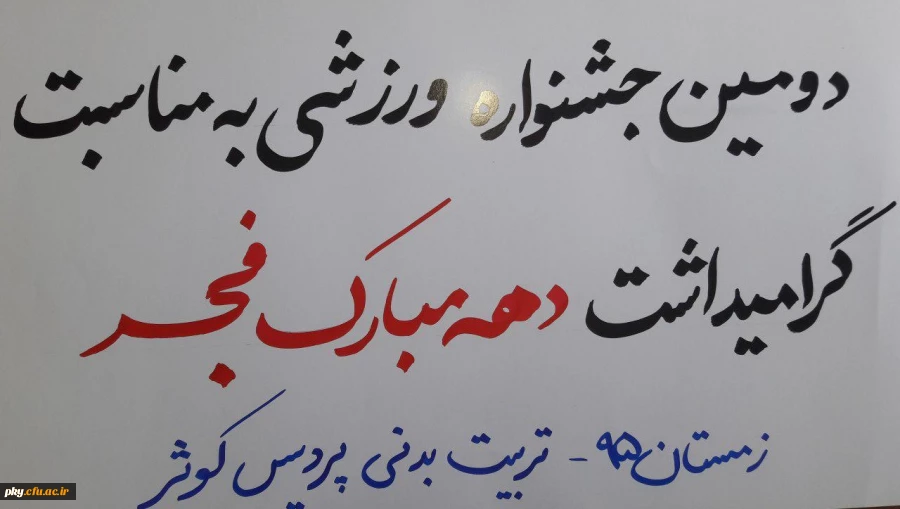 دومین جشنواره ورزشی به مناسبت
گرامیداشت دهه مبارک فجر
زمستان ۹۵ - تربیت بدنی پردیس کوثر
pky.cfu.ac.ir